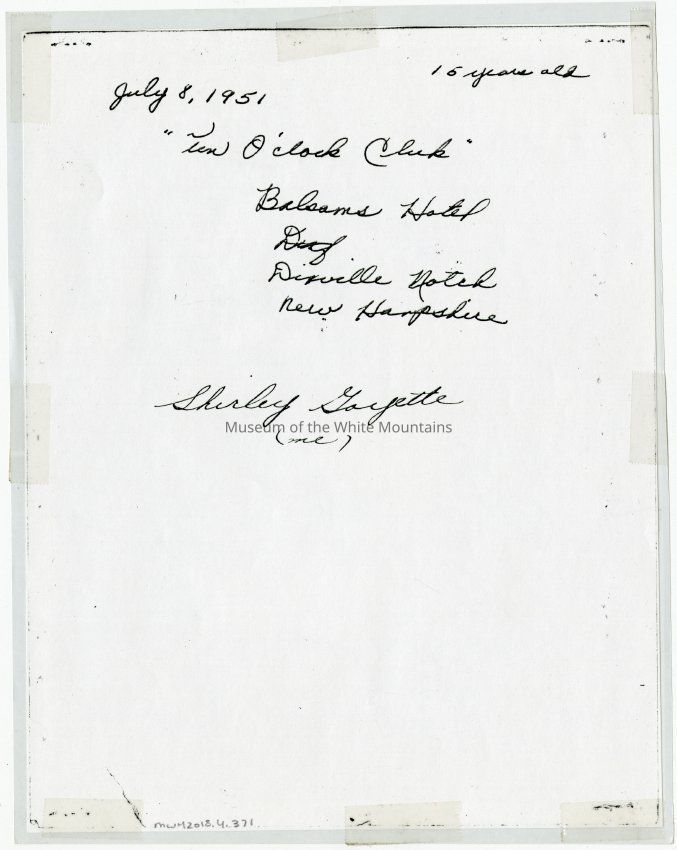 15 years old
July 8, 1951
"Ten O'clock Club"
Balsams Hotel
Dixville Notch
New Hampshire
Shirley Goyette
Museum of the White Mountains
(me)
MWM2018.4.371